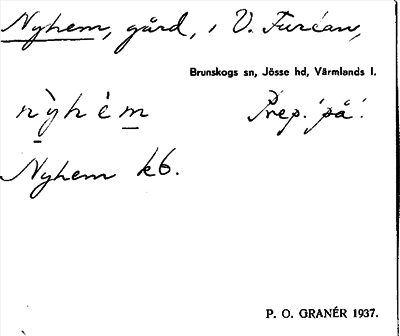 Nyhem, gård, i V. Furåan,
Brunskogs sn, Jösse hd, Värmlands l.
nỳhèm Prep. 'på'.
Nyhem kb.
P. O. GRANÉR 1937.